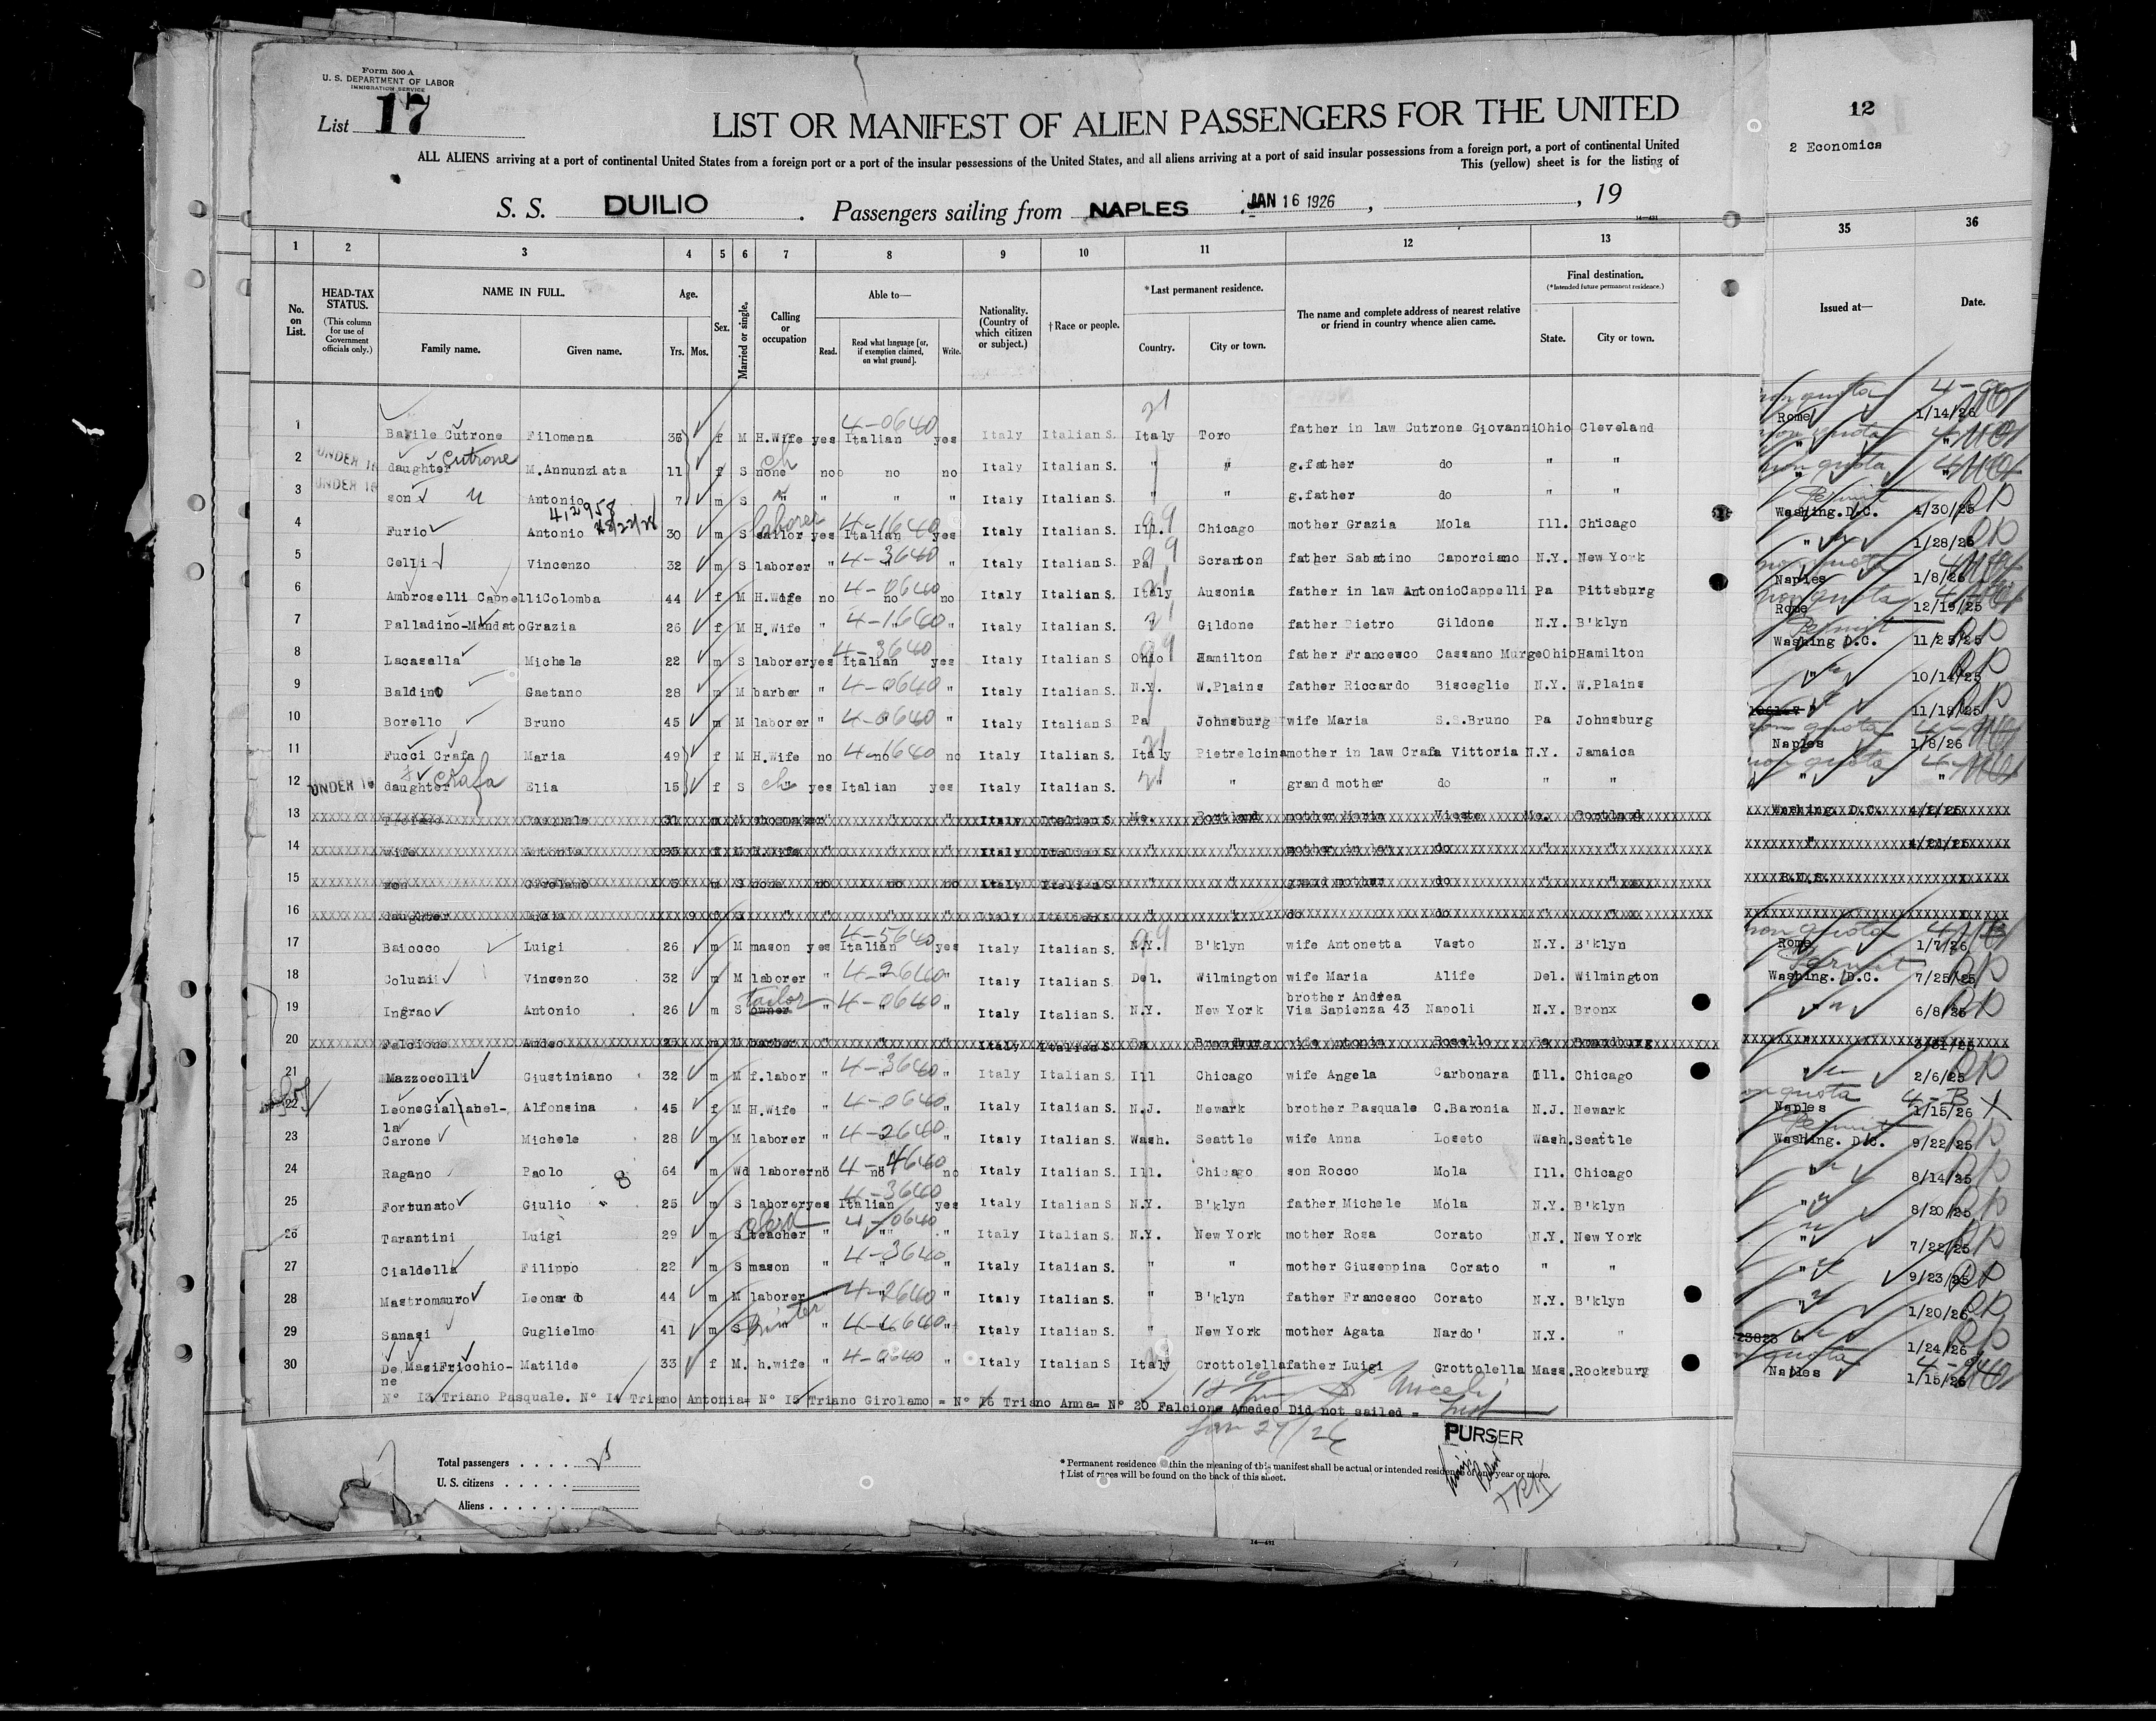 Form 500 A
U. S. DEPARTMENT OF LABOR
IMMIGRATION SERVICE
List 17
LIST OR MANIFEST OF ALIEN PASSENGERS FOR THE UNITED
ALL ALIENS arriving at a port of continental United States from a foreign port or a port of the insular possessions of the United States, and all aliens arriving at a port of said insular possessions from a foreign port, a port of continental United
This (yellow) sheet is for the listing of
S. S. DUILIO . Passengers sailing from NAPLES JAN 16 1926 , , 19
12
2 Economica
1 2 3 4 5 6 7 8 9 10 11 12 13 35 36
No. on List. HEAD-TAX STATUS. (This column for use of Government officials only.) NAME IN FULL. Age. Sex. Married or single. Calling or occupation Able to— Nationality. (Country of which citizen or subject.) †Race or people. *Last permanent residence. The name and complete address of nearest relative or friend in country whence alien came. Final destination. (*Intended future permanent residence.) Issued at— Date.
Family name. Given name. Yrs. Mos. Read. Read what language [or, if exemption claimed, on what ground]. Write. Country. City or town. State. City or town.
1 Basile Cutrone Filomena 36 f M H.Wife yes Italian 4-0640 yes Italy Italian S. Italy Toro father in law Cutrone Giovanni Ohio Cleveland non quota Rome 1/14/26
2 UNDER 16 daughter Cutrone M.Annunziata 11 f S none ch no no no Italy Italian S. " " g.father do " " non quota " "
3 UNDER 16 son " Antonio 7 m S " " " " Italy Italian S. " " g.father do " " non quota " "
4 Furio Antonio 30 m S sailor laborer yes Italian 4-1640 yes Italy Italian S. Ill. Chicago mother Grazia Mola Ill. Chicago Permit Washing.D.C. 4/30/25
5 Celli Vincenzo 32 m S laborer " 4-3640 " Italy Italian S. Pa Scranton father Sabatino Caporciano N.Y. New York " 1/28/25
6 Ambroselli Cappelli Colomba 44 f M H.Wife no no 4-0640 no Italy Italian S. Italy Ausonia father in law Antonio Cappelli Pa Pittsburg non quota Naples 1/8/26
7 Palladino-Mandato Grazia 26 f M H.Wife " 4-1640 " Italy Italian S. " Gildone father Pietro Gildone N.Y. B'klyn non quota Rome 12/19/25
8 Lacasella Michele 22 m S laborer yes Italian 4-3640 yes Italy Italian S Ohio Hamilton father Francesco Cassano Murge Ohio Hamilton Permit Washing D.C. 11/25/25
9 Baldino Gaetano 28 m M barber " 4-0640 " Italy Italian S. N.Y. W.Plains father Riccardo Bisceglie N.Y. W.Plains " 10/14/25
10 Borello Bruno 45 m M laborer " 4-0640 " Italy Italian S. Pa Johnsburg wife Maria S.S.Bruno Pa Johnsburg 11/18/25
11 Fucci Crafa Maria 49 f M H.Wife no no 4-1640 no Italy Italian S. Italy Pietrelcina mother in law Crafa Vittoria N.Y. Jamaica non quota Naples 1/8/26
12 UNDER 16 daughter Crafa Elia 15 f S " ch yes Italian yes Italy Italian S. " " grand mother do " " non quota " "
13 Pasquale 31 m M shoemaker " " " Italy Italian S. Me. Portland mother Maria Vieste Me. Portland Washing. D.C. 4/2/25
14 wife Antonia 25 f M H.Wife " " " Italy Italian S. " " mother in law do " " " 4/21/25
15 son Girolamo 5 m S none no no no Italy Italian S. " " grand mother do " "
16 daughter 9 f S " " " " Italy Italian S " " do do " "
17 Baiocco Luigi 26 m M mason yes Italian 4-5640 yes Italy Italian S. N.Y. B'klyn wife Antonetta Vasto N.Y. B'klyn non quota Rome 1/7/26
18 Colunii Vincenzo 32 m M laborer " 4-2640 " Italy Italian S. Del. Wilmington wife Maria Alife Del. Wilmington Permit Washing. D.C. 7/25/25
19 Ingrao Antonio 26 m S owner tailor " 4-0640 " Italy Italian S. N.Y. New York brother Andrea Via Sapienza 43 Napoli N.Y. Bronx " 6/8/25
20 Falcione Amdeo m M barber " " " Italy Italian S. Pa wife Antonia Rosello Pa " 3/31/25
21 Mazzocolli Giustiniano 32 m M f.labor " 4-3640 " Italy Italian S. Ill Chicago wife Angela Carbonara Ill. Chicago " 2/6/25
22 LeoneGiallabel-la Alfonsina 45 f M H.Wife " 4-0640 " Italy Italian S. N.J. Newark brother Pasquale C.Baronia N.J. Newark non quota Naples 4-B 1/15/26
23 Carone Michele 28 m M laborer " 4-2640 " Italy Italian S. Wash. Seattle wife Anna Loseto Wash. Seattle Permit Washing. D.C. 9/22/25
24 Ragano Paolo 64 m Wd laborer no no 4-4640 no Italy Italian S. Ill. Chicago son Rocco Mola Ill. Chicago " 8/14/25
25 Fortunato Giulio 25 m S laborer yes Italian 4-3640 yes Italy Italian S N.Y. B'klyn father Michele Mola N.Y. B'klyn " 8/20/25
26 Tarantini Luigi 29 m S teacher " 4-0640 " Italy Italian S. N.Y. New York mother Rosa Corato N.Y. New York " 7/22/25
27 Cialdella Filippo 22 m S mason " 4-3640 " Italy Italian S. " " mother Giuseppina Corato " " " 9/23/25
28 Mastromauro Leonardo 44 m M laborer " 4-2640 " Italy Italian S. " B'klyn father Francesco Corato N.Y. B'klyn " 1/20/26
29 Sanasi Guglielmo 41 m S " " " Italy Italian S. " New York mother Agata Nardo' N.Y. " 23823 1/24/26
30 De MasiFricchio-ne Matilde 33 f M. h.wife " 4-0640 " Italy Italian S Italy Grottolella father Luigi Grottolella Mass. Rocksbury non quota Naples 1/15/26
N° 13 Triano Pasquale. N° 14 Triano Antonia= N° 15 Triano Girolamo = N° 16 Triano Anna= N° 20 Falcione Amedeo Did not sailed =
Jan 27/26
PURSER
Total passengers
U. S. citizens
Aliens
* Permanent residence within the meaning of this manifest shall be actual or intended residence of one year or more.
† List of races will be found on the back of this sheet.